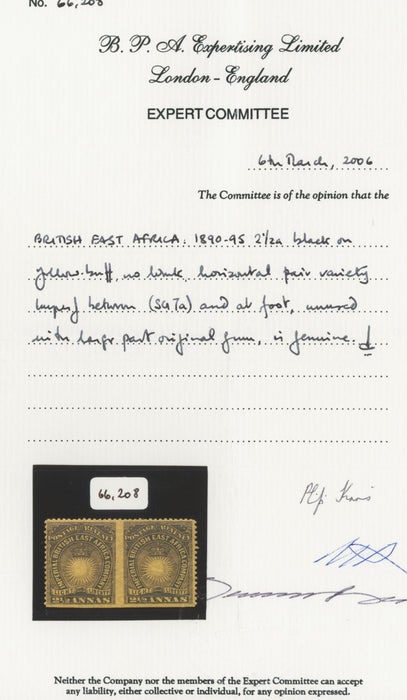 No. 66,208
B. P. A. Expertising Limited
London - England
EXPERT COMMITTEE
6th March, 2006
The Committee is of the opinion that the
BRITISH EAST AFRICA: 1890-95 2½a black on
yellow-buff, no wmk, horizontal pair variety
imperf between (SG7a) and at foot, unused
with large part original gum, is genuine.
66,208
POSTAGE REVENUE POSTAGE REVENUE
IMPERIAL BRITISH EAST AFRICA COMPANY IMPERIAL BRITISH EAST AFRICA COMPANY
LIGHT LIBERTY LIGHT LIBERTY
2½ ANNAS 2½ ANNAS
Neither the Company nor the members of the Expert Committee can accept
any liability, either collective or individual, for any opinion expressed.